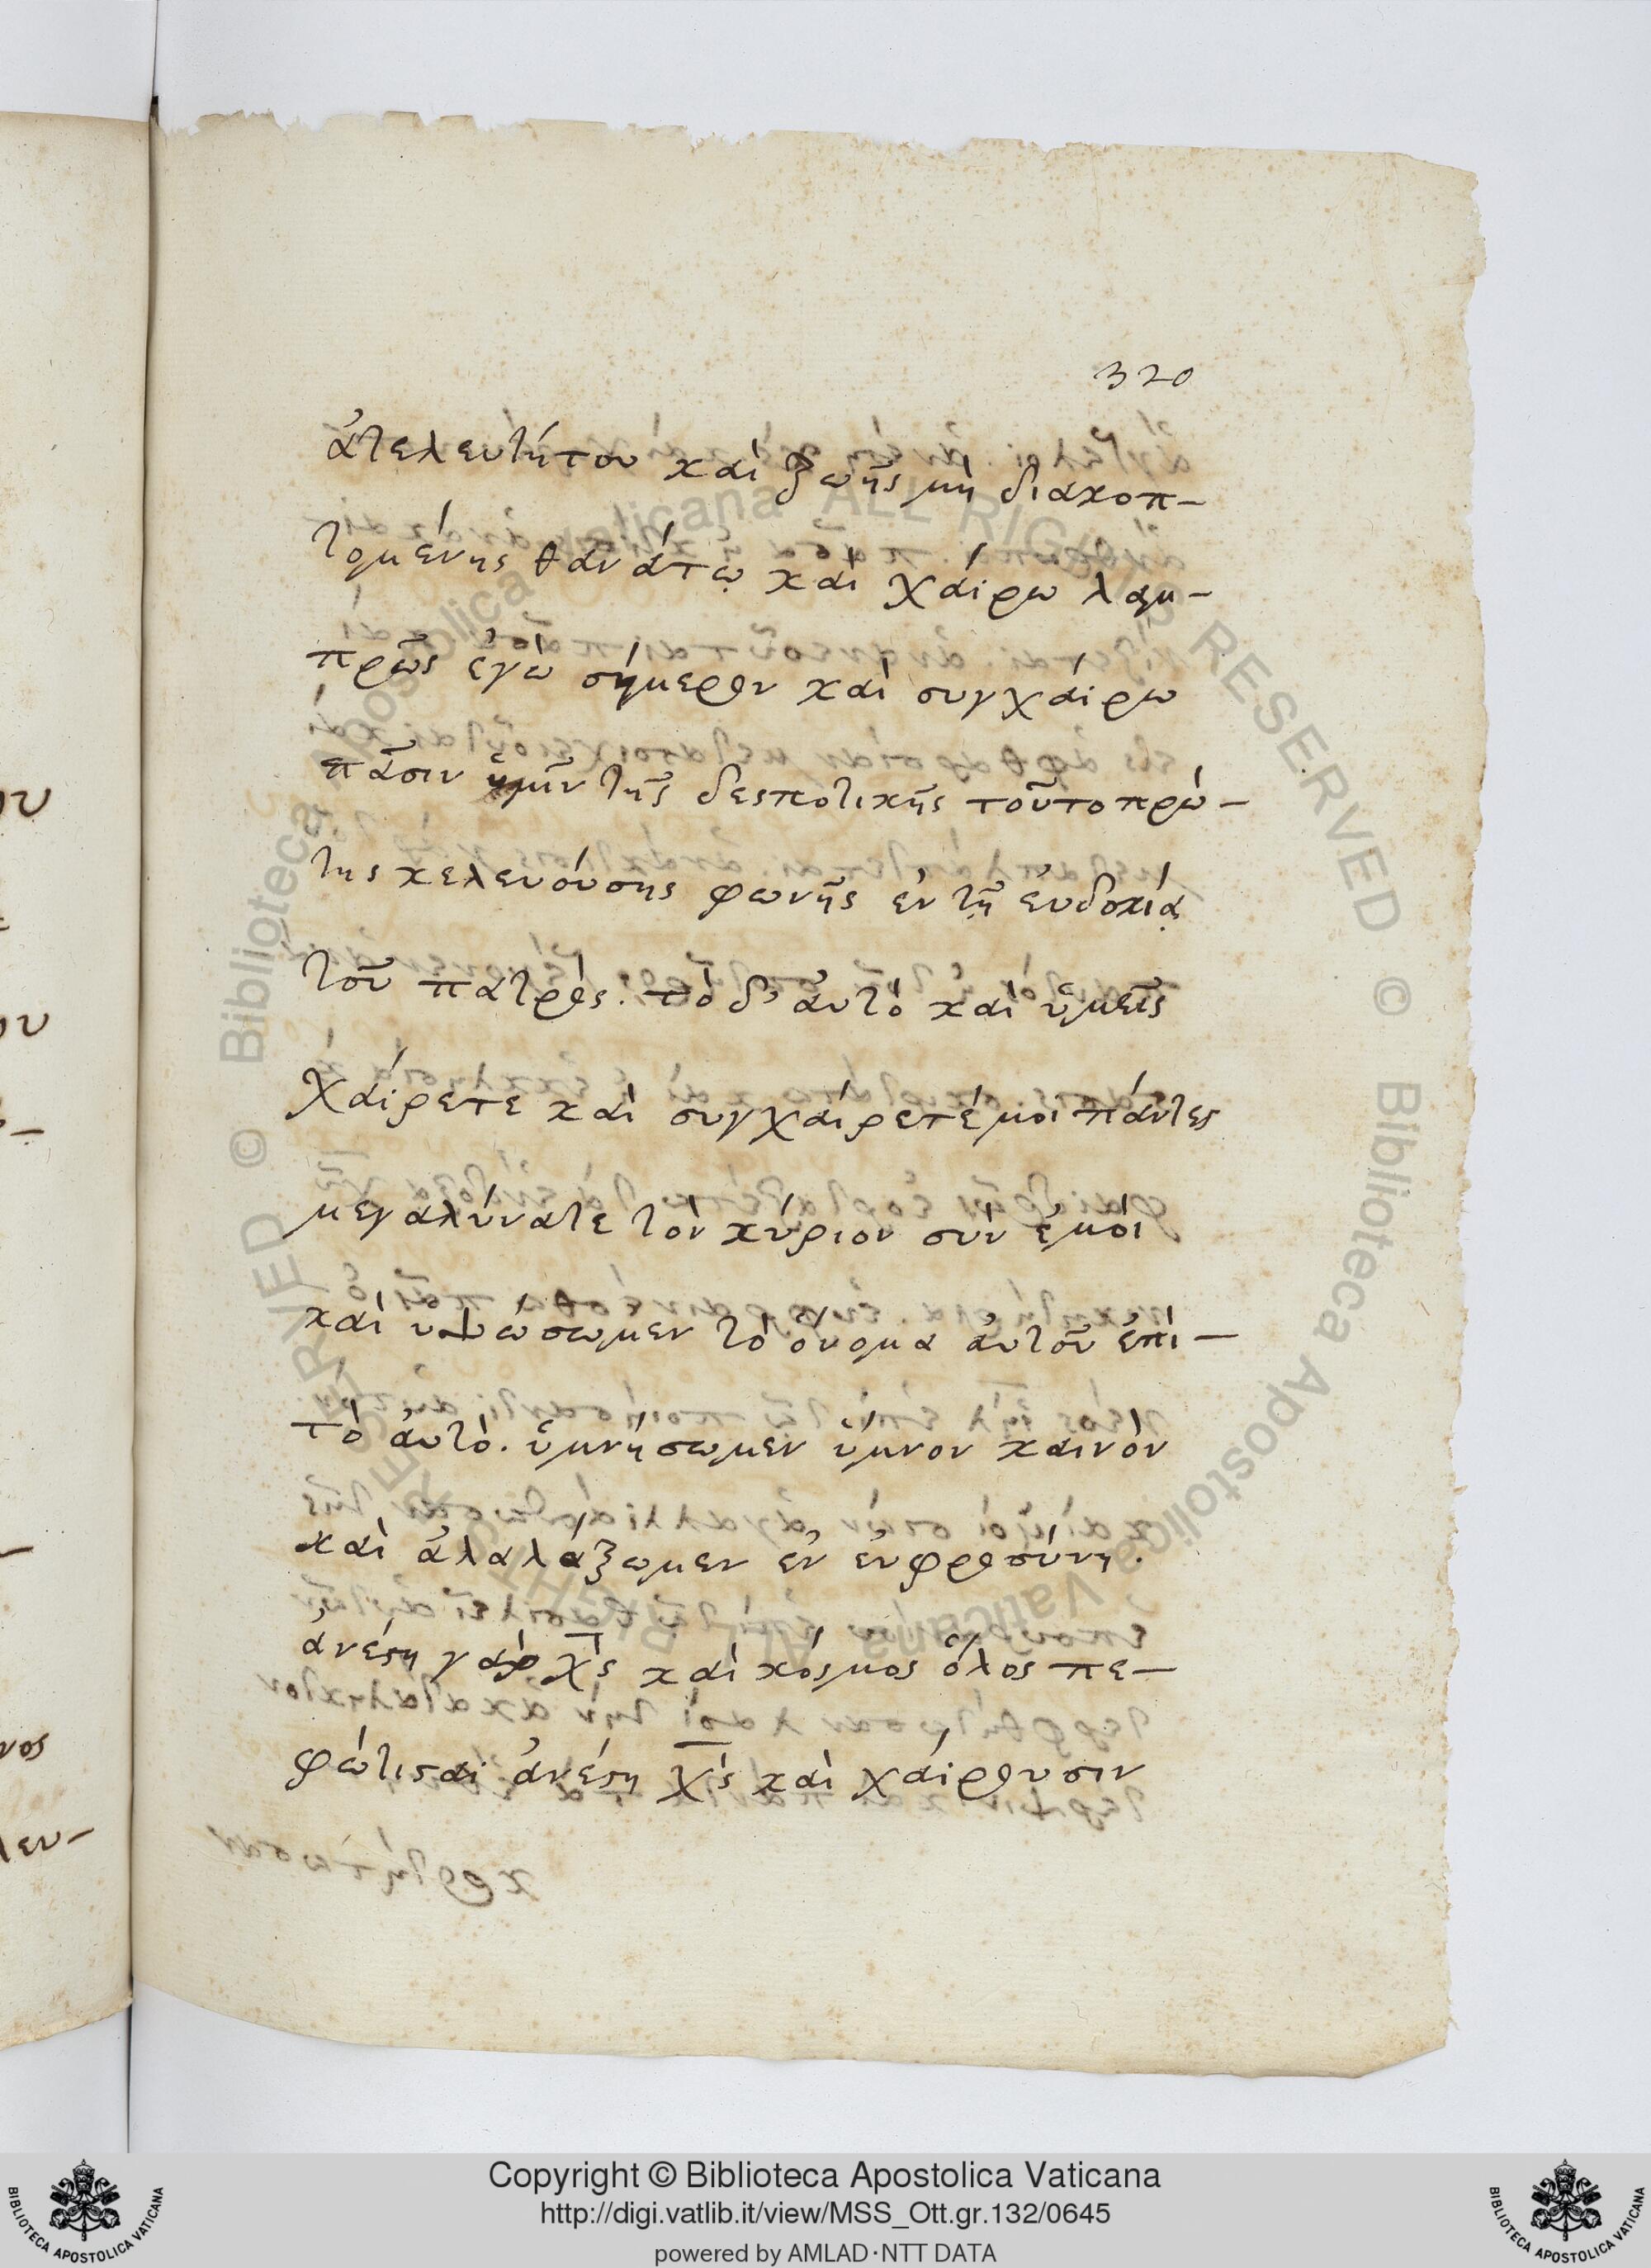 320
ἀτελευτήτου καὶ ζωῆς μὴ διακοπ-
τομένης θανάτῳ καὶ χάιρω λαμ-
πρῶς ἐγὼ σήμερον καὶ συγχάιρω
πᾶσιν ὑμῖν τῆς δεσποτικῆς τοῦτο πρώ-
της κελευόυσης φωνῆς ἐν τῇ ἐυδοκίᾳ
τοῦ πατρός. τὸ δ' ἀυτὸ καὶ ὑμεῖς
χάιρετε καὶ συγχάιρετέ μοι πάντες
μεγαλύνατε τὸν κύριον σὺν ἐμόι
καὶ υψώσωμεν τὸ ὄνομα ἀυτοῦ ἐπὶ-
τὸ ἀυτὸ. ὑμνήσωμεν ὕμνον καινὸν
καὶ ἀλαλάξωμεν ἐν ἐυφροσύνη.
ἀνέστη γὰρ χς καὶ κόσμος ὅλος πε-
φώτισται ἀνέστη χς καὶ χάιρουσιν
Copyright © Biblioteca Apostolica Vaticana
http://digi.vatlib.it/view/MSS_Ott.gr.132/0645
powered by AMLAD·NTT DATA
BIBLIOTECA APOSTOLICA VATICANA
BIBLIOTECA APOSTOLICA VATICANA